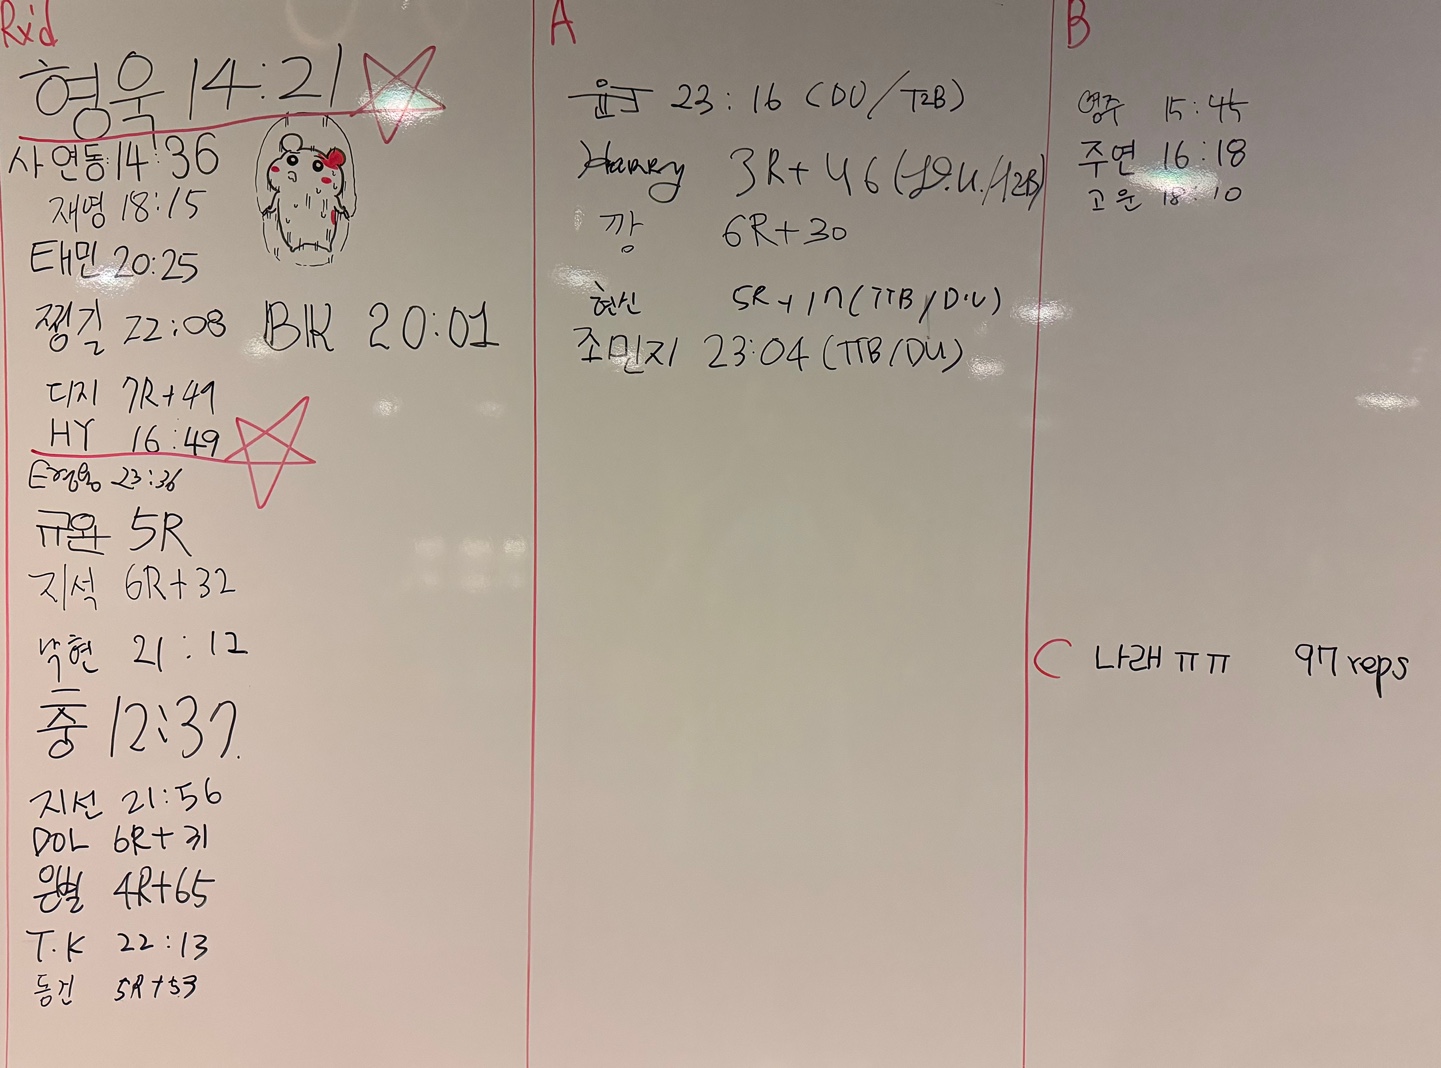 Rx'd
형욱 14:21
사연동 14:36
재영 18:15
태민 20:25
쩡길 22:08
BIK 20:01
디지 7R+49
HY 16:49
23:36
규완 5R
지석 6R+32
낙현 21:12
중 12:37
지선 21:56
DOL 6R+31
은별 4R+65
T.K 22:13
동건 5R+53
A
23:16 (DU/T2B)
Harry 3R+46 (D.U./T2B)
깡 6R+30
현신 5R+17 (TTB/D.U)
조민지 23:04 (TTB/DU)
B
영주 15:45
주연 16:18
고운 18:10
C 나래 ㅠㅠ 97 reps